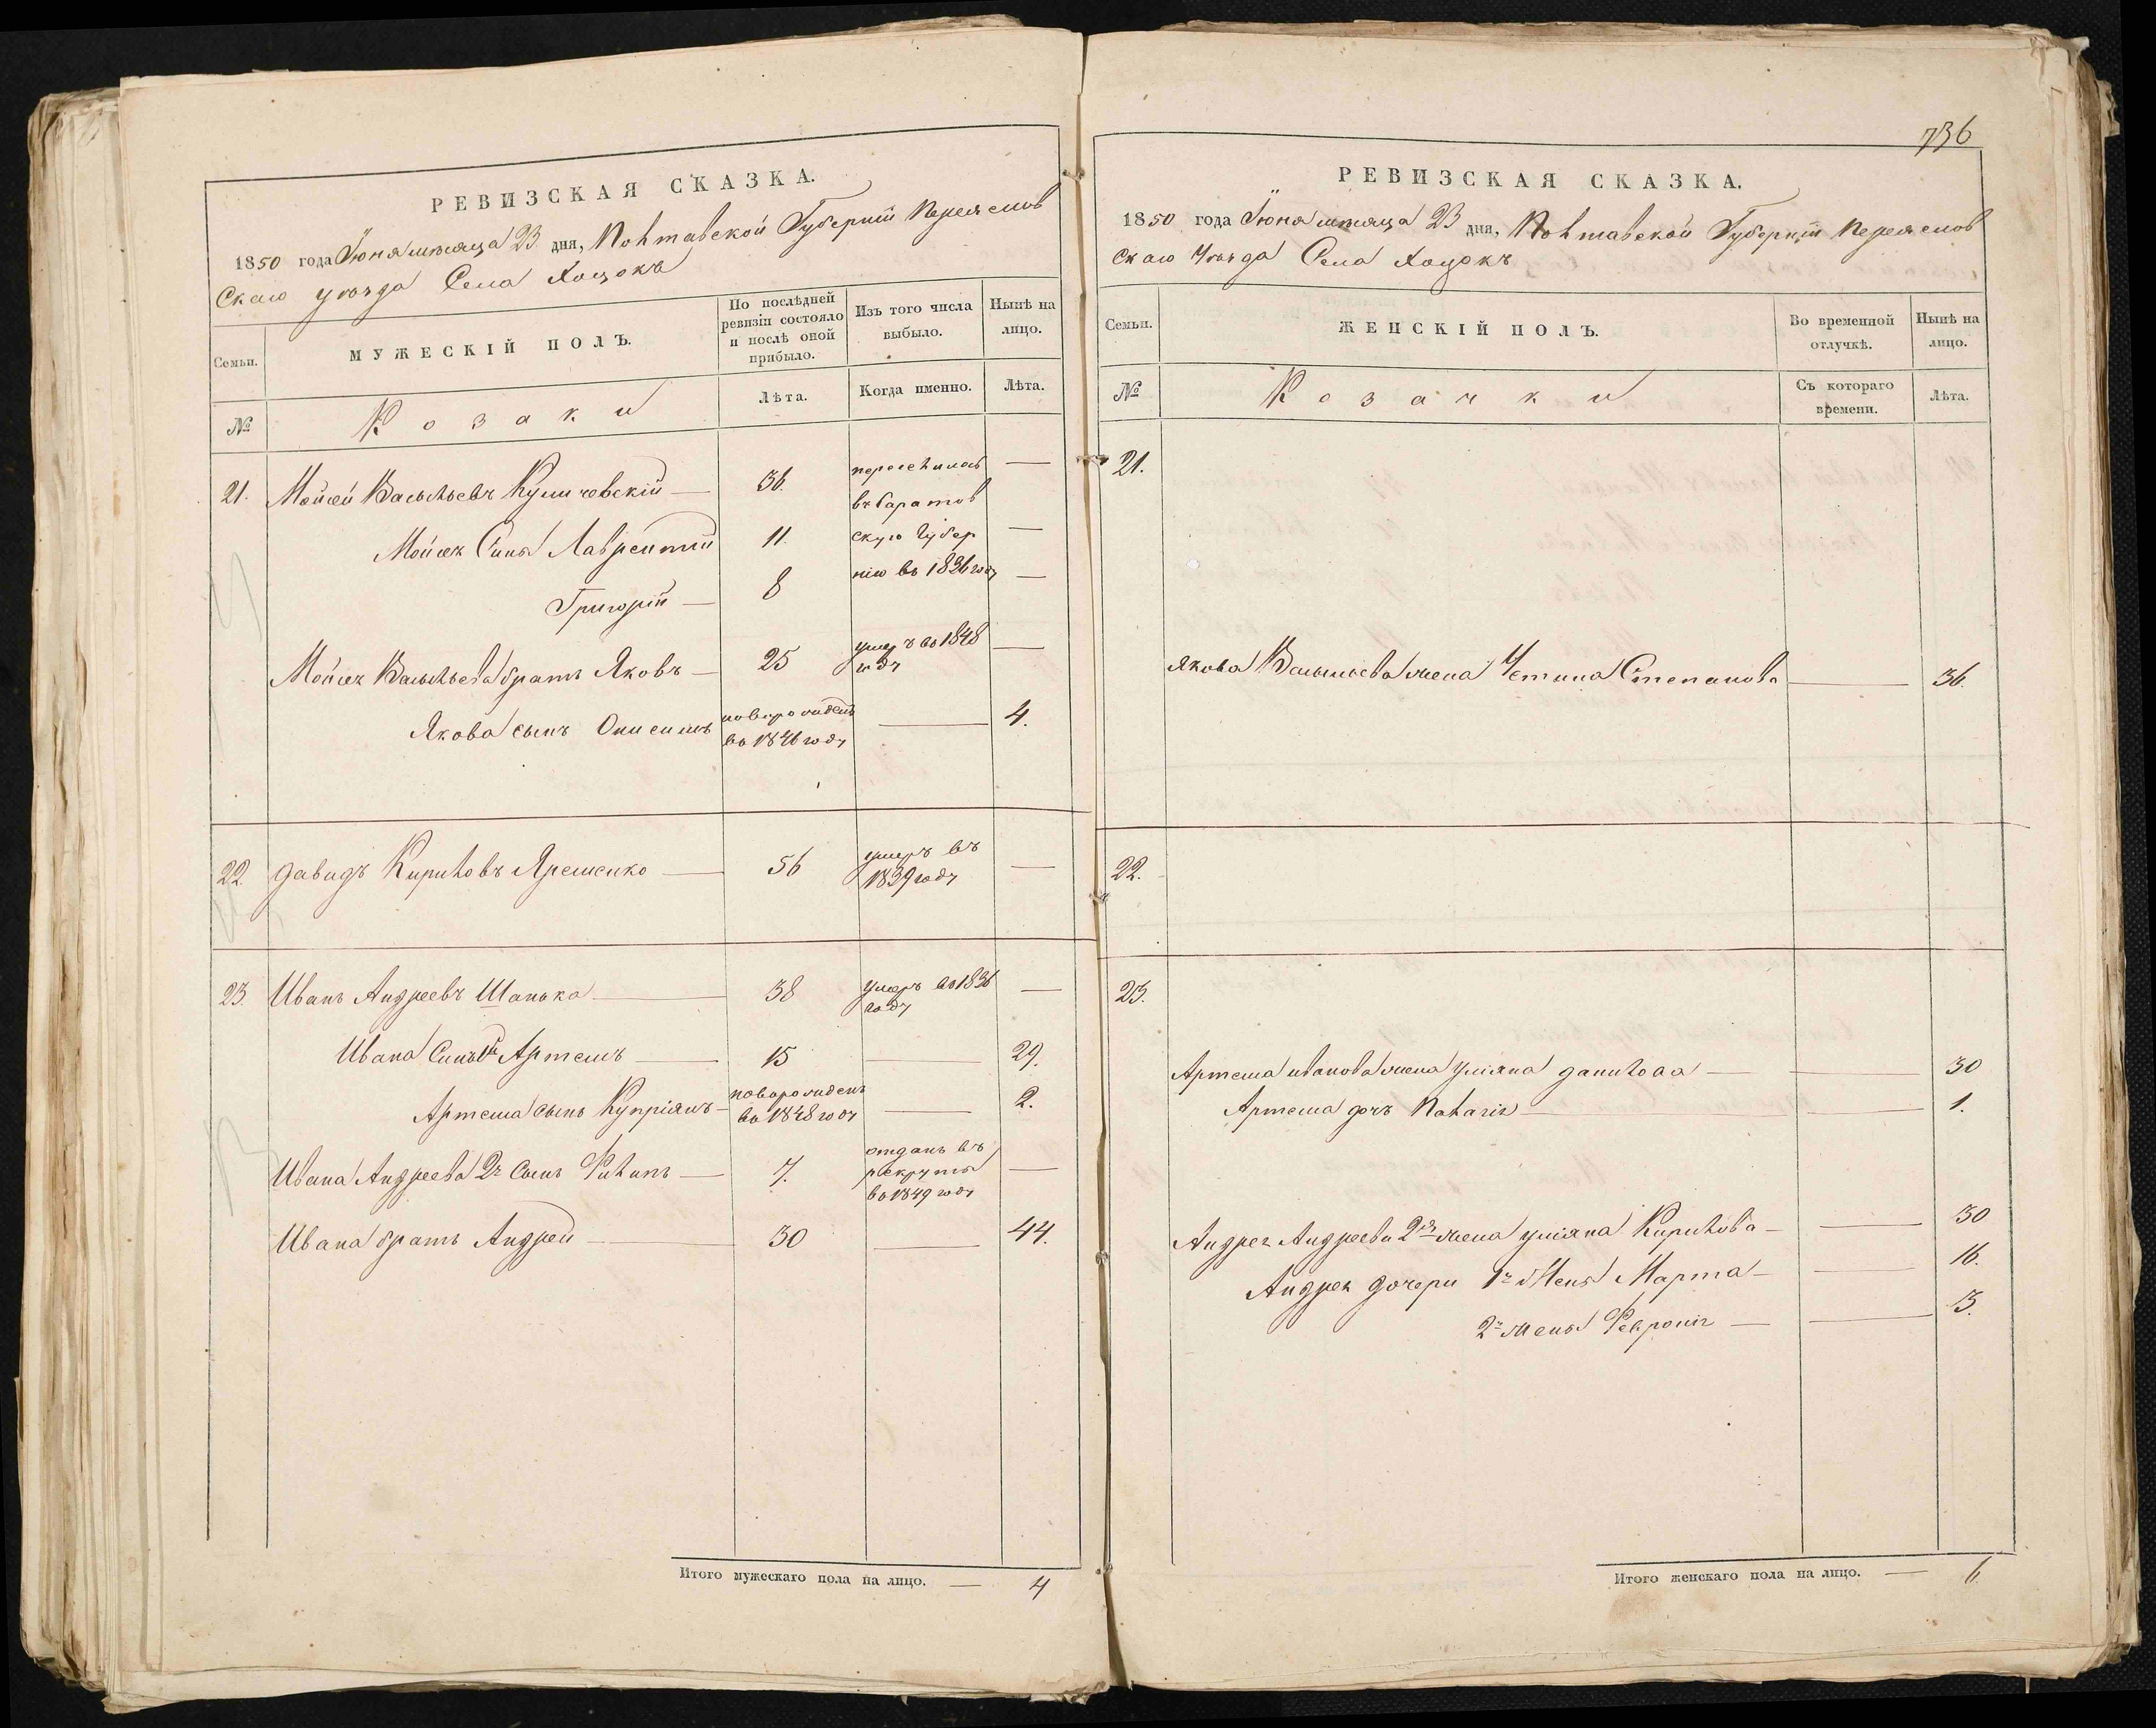 РЕВИЗСКАЯ СКАЗКА.
1850 года Іюня мѣсяца 23 дня, Полтавской Губерніи Переяслов
Скаго уѣзда Села Хоцокъ
Семьи.
МУЖЕСКІЙ ПОЛЪ.
По послѣдней ревизіи состояло и послѣ оной прибыло.
Изъ того числа выбыло.
Нынѣ на лицо.
№
Козаки
Лѣта.
Когда именно.
Лѣта.
21. Мойсей Васильевъ Куличевскій — 36. переселился —
въ Саратов
Мойсея Сынъ Лаврентій 11. скую Губер —
нію въ 1836 году
Григорій — 8 —
Мойсея Васильева братъ Яковъ — 25 умеръ въ 1848 —
годѣ
Якова сынъ Онисимъ новорожденъ — 4.
въ 1846 годѣ
22. Давидъ Кириловъ Ярешенко — 56 умеръ въ —
1839 годѣ
23. Иванъ Андреевъ Шанька — 38 умеръ въ 1836 —
годѣ
Ивана Сынъ Артемъ — 15 — 29.
Артема сынъ Купріянъ — новорожденъ — 2.
въ 1848 годѣ
отданъ въ
Ивана Андреева 2й Сынъ Филипъ — 7. рекруты —
въ 1849 годѣ
Ивана братъ Андрей — 30 — 44.
Итого мужескаго пола на лицо. — 4
736
РЕВИЗСКАЯ СКАЗКА.
1850 года Іюня мѣсяца 23 дня, Полтавской Губерніи Переяслов
Скаго Уѣзда Села Хоцокъ
Семьи.
ЖЕНСКІЙ ПОЛЪ.
Во временной отлучкѣ.
Нынѣ на лицо.
№
Козачки
Съ котораго времени.
Лѣта.
21.
Якова Васильева жена Устина Степанова — 36.
22.
23.
Артема иванова жена уліяна данилова — — 30
Артема дочь Палагія — — 1.
Андрея Андреева 2я жена уліяна Кирилова — — 30
Андрея дочери 1й Жены Марта — — 16.
2й жены Февронія — — 13.
Итого женскаго пола на лицо. — 6.